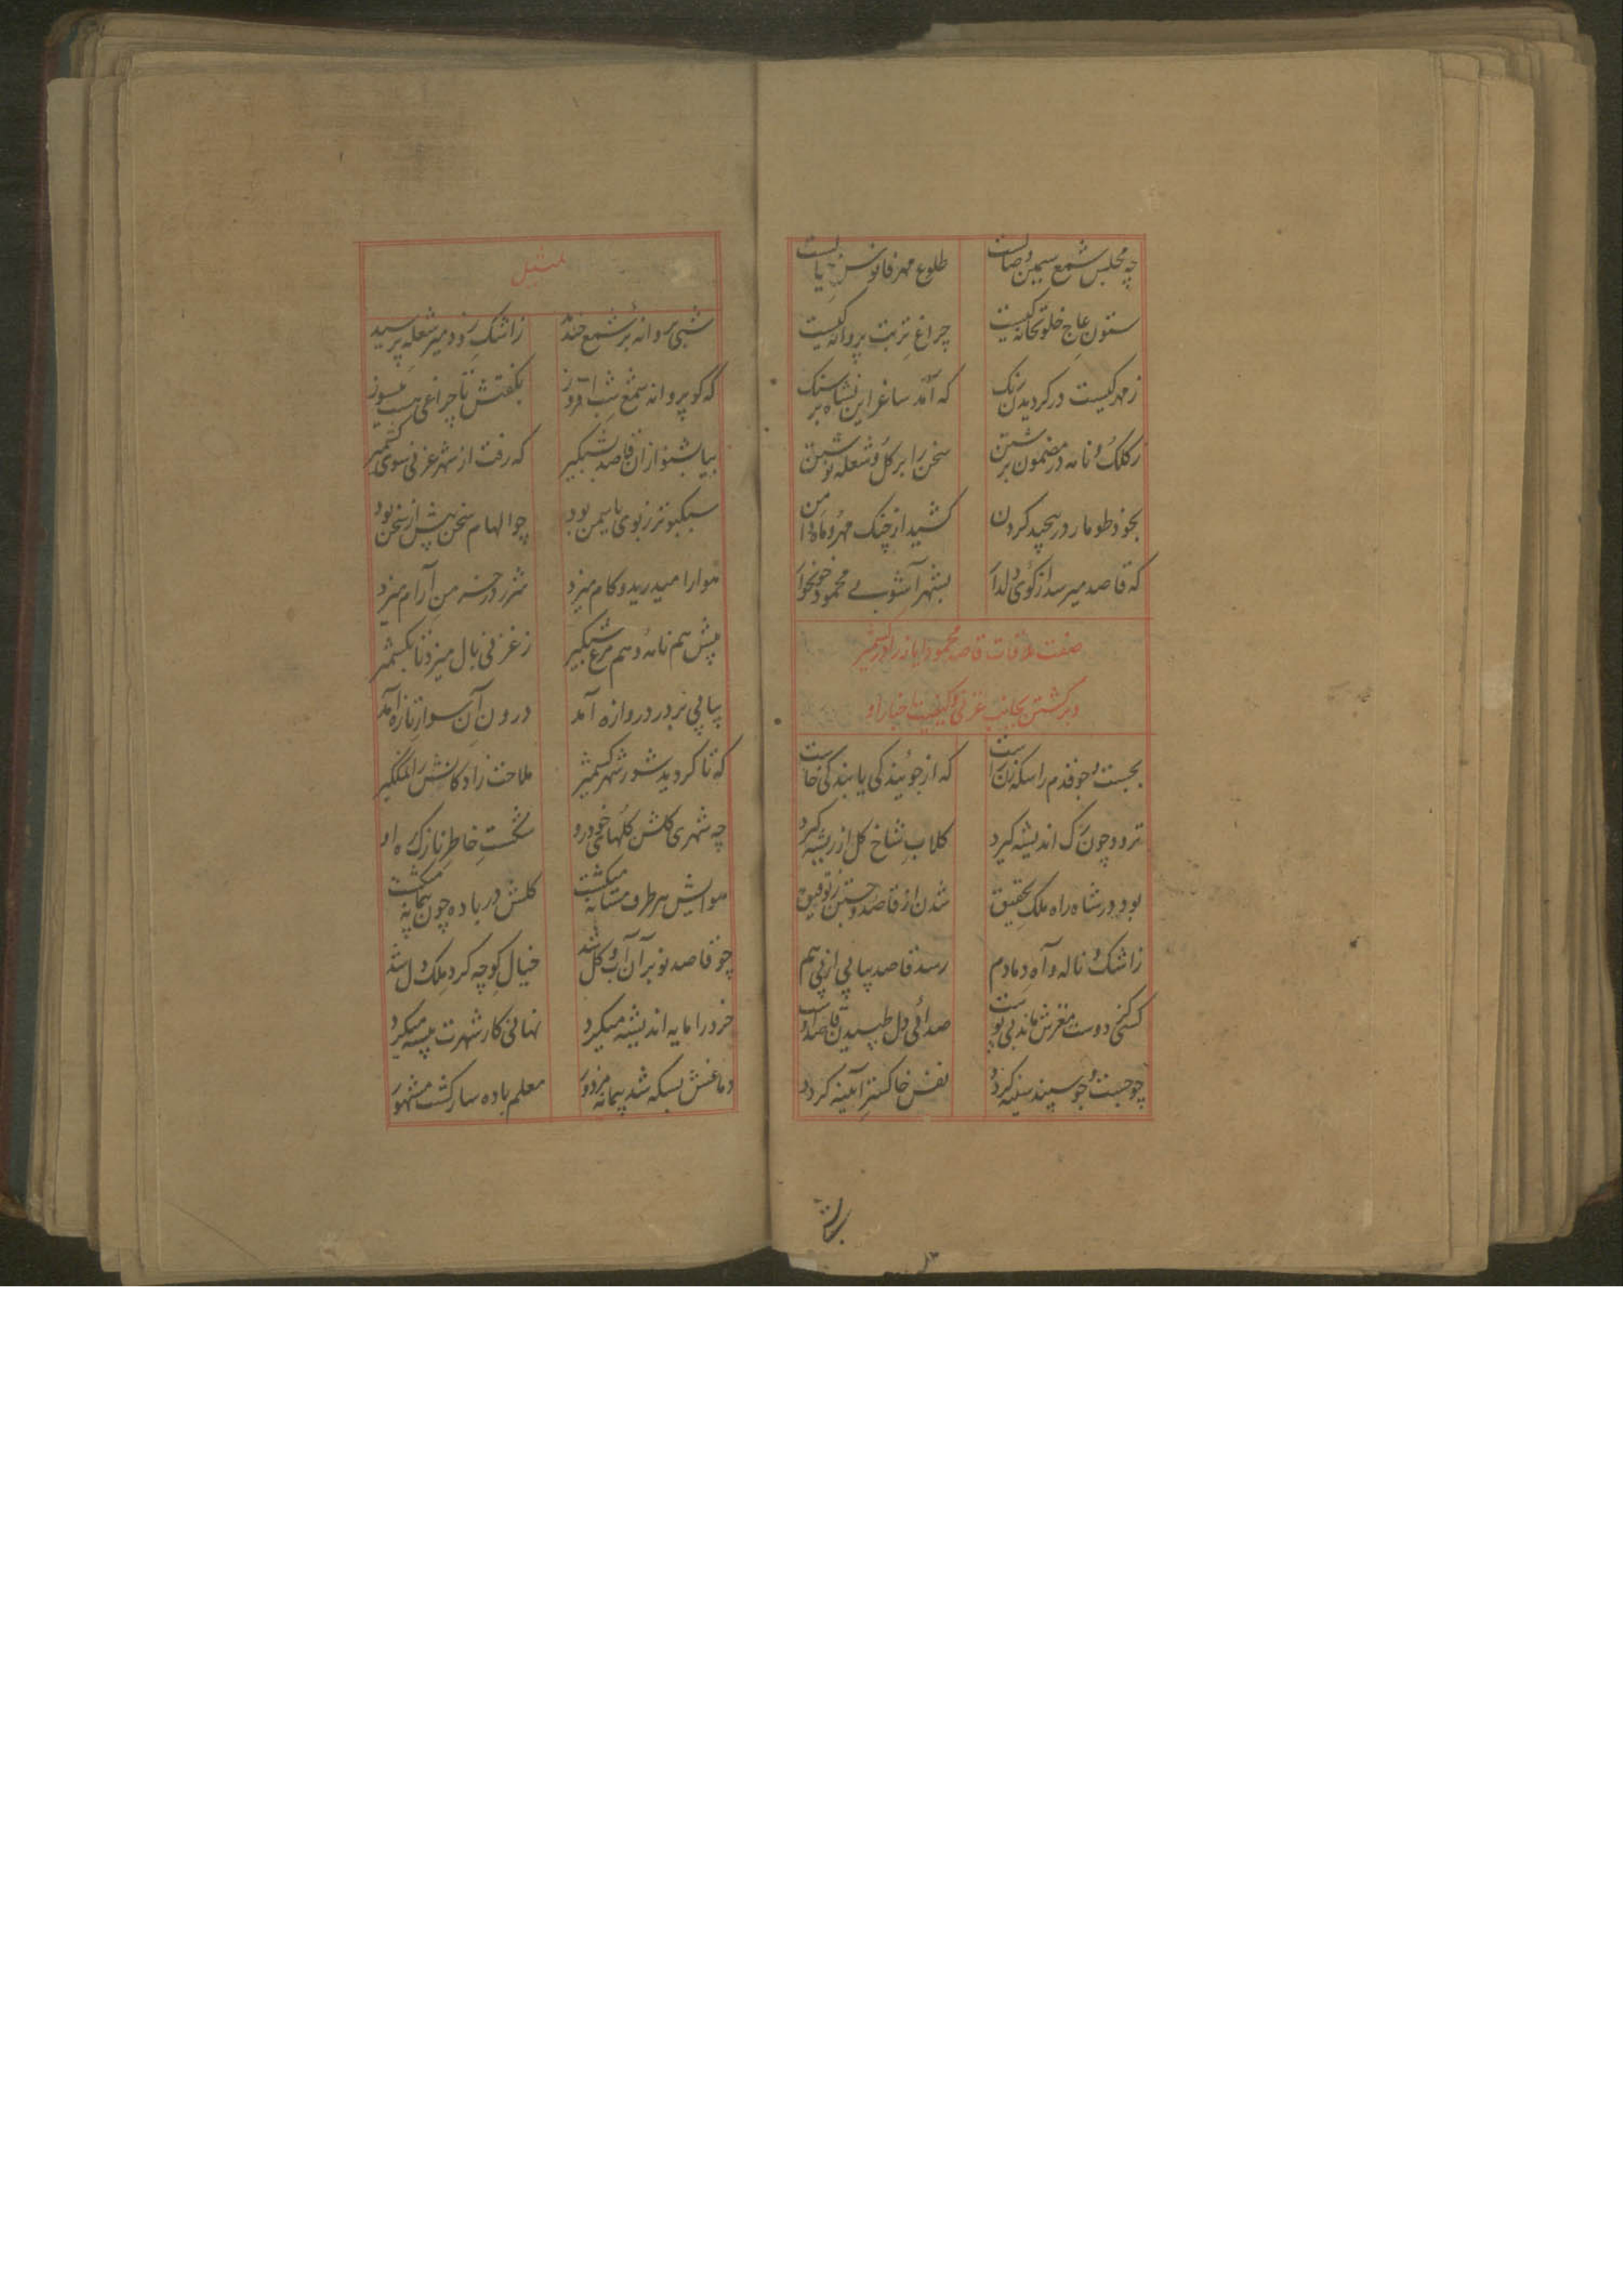 چه مجلس شمع سیمین وصالست
طلوع مهر فانوس خیالست
ستون عاج خلوتخانه کیست
چراغ تربت پروانه کیست
ز مهر کیست در کردیدن رنک
که آمد ساغر این نشاه بر سنک
ز کلک و نامه در مضمون برشتن
سخن را بر کل و شعله نوشتن
بخود طومار در پیچید کردن
کشید از چنک مهر و ماه دامن
که قاصد میرسد از کوی دلدار
بشهر آشوب محمود خونخوار
صفت ملاقات قاصد محمود ایاز را در کشمیر
و برکشتن بجانب غزنی و کیفیت اخبار او
بجست و جو قدم را سکه زن راست
که از جویندکی یابندکی خاست
ترود چون رک اندیشه کیرد
کلاب شاخ کل از ریشه کیرد
بود در شاه راه ملک تحقیق
شدن از قاصد و جستن ز توفیق
ز اشک و ناله و آه دمادم
رسد قاصد پیاپی از پی هم
کسی دوست مغزش ماند بی پوست
صدائی دل طپیدن قاصد اوست
چو جست و جو سپند سینه کردد
نفس خاکستر آینه کردد
تمثیل
شبی پروانه بر شمع خندید
ز اشک زود میر شعله پرسید
که کو پروانه شمع شب افروز
بکفتش تا چراغی هست میسوز
بیا بشنو از آن قاصد شبکیر
که رفت از شهر غزنی سوی کشمیر
سبکبوتر ز بوی یاسمن بود
چو الهام سخن پیش از سخن بود
هوا را میدرید و کام میزد
شرر در خرمن آرام میزد
پیش هم نامه و هم مرغ شبکیر
ز غزنی بال میزد تا بکشمیر
پیاپی بر در دروازه آمد
درون آن سواز تازه آمد
که تا کردید شور شهر کشمیر
ملاحت زاد کانش را نمکیر
چه شهری کلشن کلهای خودرو
شکست خاطر نازک ه او
هوایش هر طرف مستانه میکشت
کلش در باده چون پیمانه میکشت
چو قاصد نو بر آن آب و کل شد
خیال کوچه کرد ملک دل شد
خرد را مایه اندیشه میکرد
نهانی کار شهرت پیشه میکرد
دماغش بسکه شد پیمانه مزدور
معلم باده سار کشت مشهور